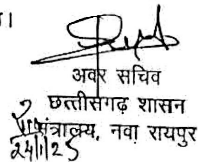 ।
अवर सचिव
छत्तीसगढ़ शासन
मंत्रालय, नवा रायपुर
24/1/25